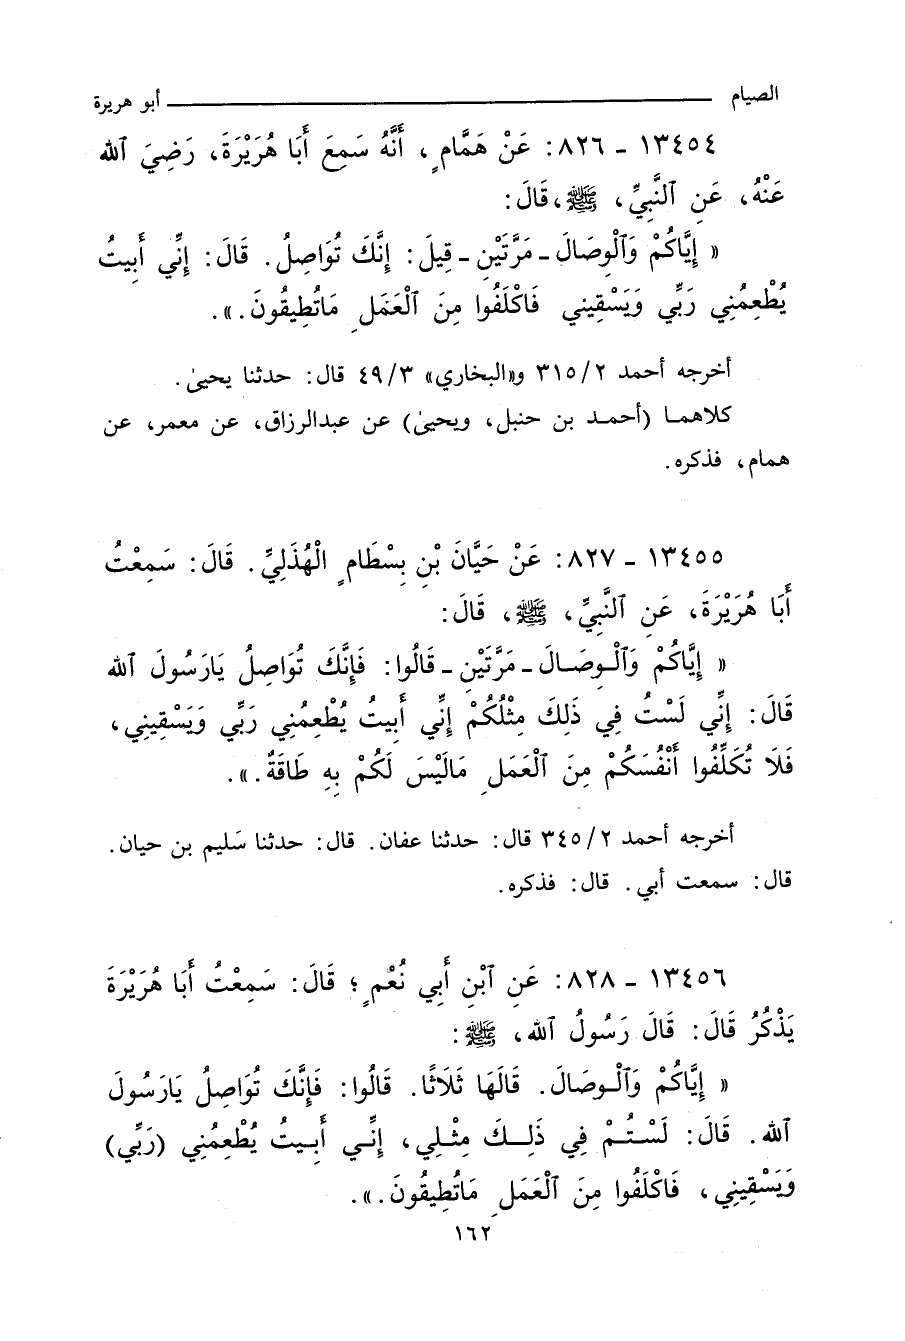 الصيام ـــــ أبو هريرة
١٣٤٥٤ ـ ٨٢٦: عَنْ هَمَّامٍ، أَنَّهُ سَمِعَ أَبَا هُرَيْرَةَ، رَضِيَ ٱلله
عَنْهُ، عَنِ ٱلنَّبِيِّ، ﷺ، قَالَ:
« إِيَّاكُمْ وَٱلْوِصَالَ ـ مَرَّتَيْنِ ـ قِيلَ: إِنَّكَ تُوَاصِلُ. قَالَ: إِنِّي أَبِيتُ
يُطْعِمُنِي رَبِّي وَيَسْقِينِي فَاكْلَفُوا مِنَ ٱلْعَمَلِ مَاتُطِيقُونَ.».
أخرجه أحمد ٣١٥/٢ و«البخاري» ٤٩/٣ قال: حدثنا يحيىٰ.
كلاهما (أحمد بن حنبل، ويحيىٰ) عن عبدالرزاق، عن معمر، عن
همام، فذكره.
١٣٤٥٥ ـ ٨٢٧: عَنْ حَيَّانَ بْنِ بِسْطَامٍ الْهُذَلِيِّ. قَالَ: سَمِعْتُ
أَبَا هُرَيْرَةَ، عَنِ ٱلنَّبِيِّ، ﷺ، قَالَ:
« إِيَّاكُمْ وَٱلْوِصَالَ ـ مَرَّتَيْنِ ـ قَالُوا: فَإِنَّكَ تُوَاصِلُ يَارَسُولَ ٱلله
قَالَ: إِنِّي لَسْتُ فِي ذَلِكَ مِثْلُكُمْ إِنِّي أَبِيتُ يُطْعِمُنِي رَبِّي وَيَسْقِينِي،
فَلَا تُكَلِّفُوا أَنْفُسَكُمْ مِنَ ٱلْعَمَلِ مَالَيْسَ لَكُمْ بِهِ طَاقَةٌ.».
أخرجه أحمد ٣٤٥/٢ قال: حدثنا عفان. قال: حدثنا سَليم بن حيان.
قال: سمعت أبي. قال: فذكره.
١٣٤٥٦ ـ ٨٢٨: عَنِ ٱبْنِ أَبِي نُعْمٍ؛ قَالَ: سَمِعْتُ أَبَا هُرَيْرَةَ
يَذْكُرُ قَالَ: قَالَ رَسُولُ ٱلله، ﷺ:
« إِيَّاكُمْ وَٱلْوِصَالَ. قَالَهَا ثَلَاثًا. قَالُوا: فَإِنَّكَ تُوَاصِلُ يَارَسُولَ
ٱلله. قَالَ: لَسْتُمْ فِي ذَلِكَ مِثْلِي، إِنِّي أَبِيتُ يُطْعِمُنِي (رَبِّي)
وَيَسْقِينِي، فَاكْلَفُوا مِنَ ٱلْعَمَلِ مَاتُطِيقُونَ.».
١٦٢